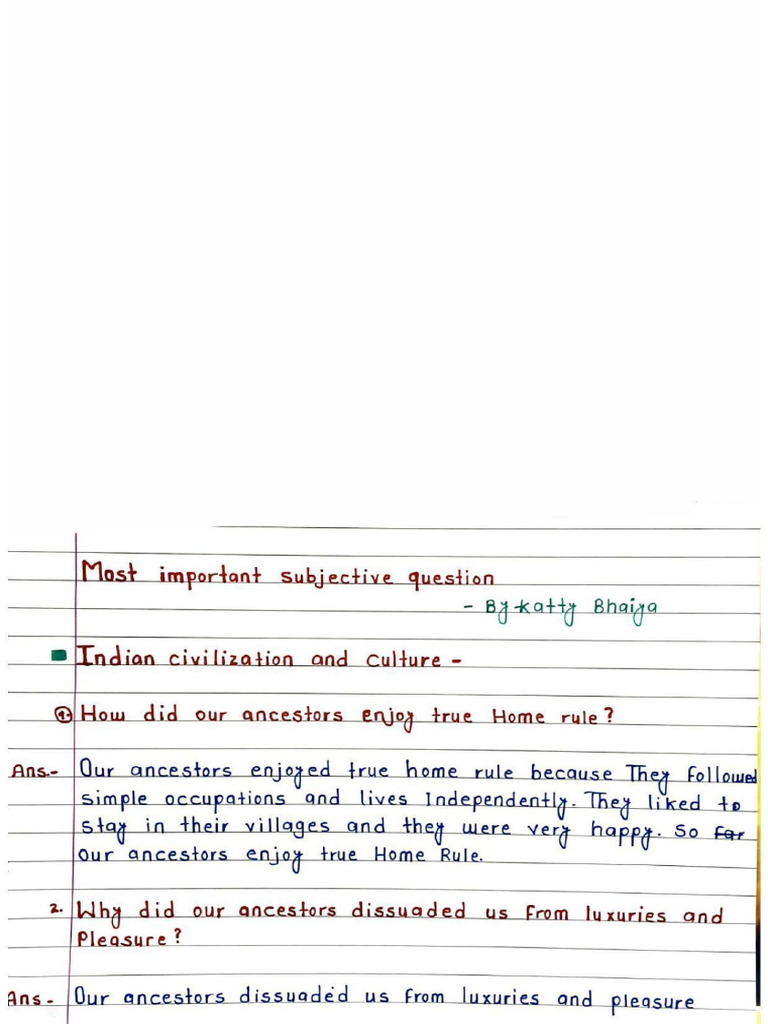 Most important subjective question
- By-katty Bhaiya
Indian civilization and culture -
1. How did our ancestors enjoy true Home rule?
Ans.- Our ancestors enjoyed true home rule because They followed
simple occupations and lives Independently. They liked to
stay in their villages and they were very happy. So far
our ancestors enjoy true Home Rule.
2. Why did our ancestors dissuaded us from luxuries and
Pleasure?
Ans - Our ancestors dissuaded us from luxuries and pleasure